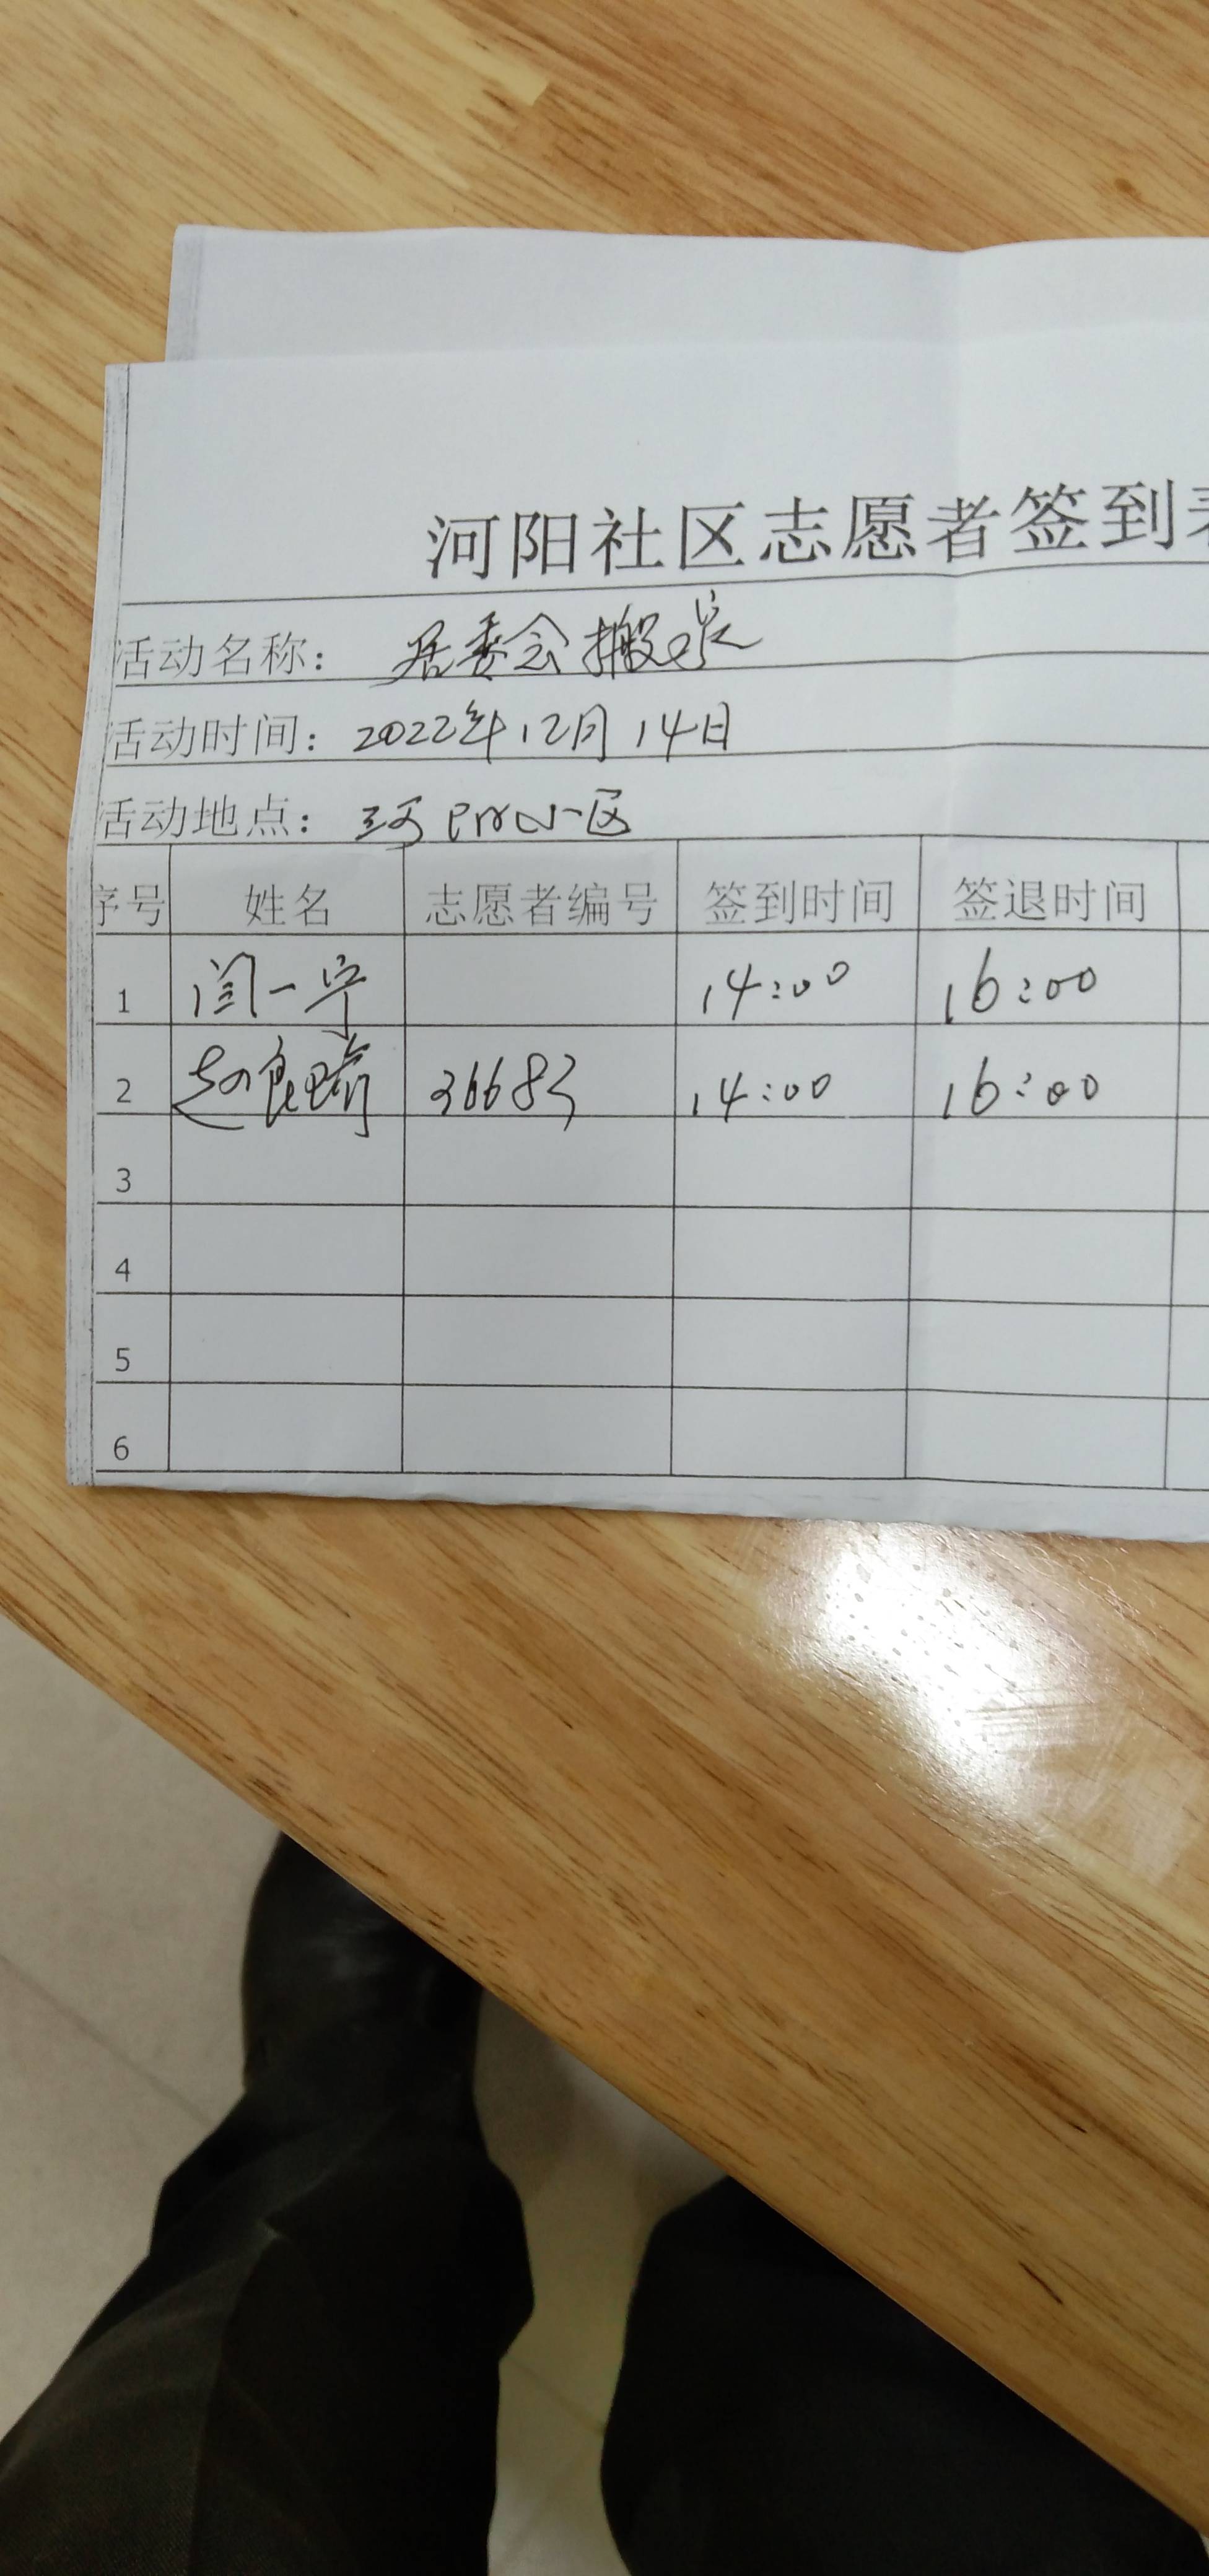 河阳社区志愿者签到表
活动名称： 居委会搬家
活动时间： 2022年12月14日
活动地点： 小区
序号 姓名 志愿者编号 签到时间 签退时间
1 闫一宁 14:00 16:00
2 赵良瑜 36683 14:00 16:00
3
4
5
6